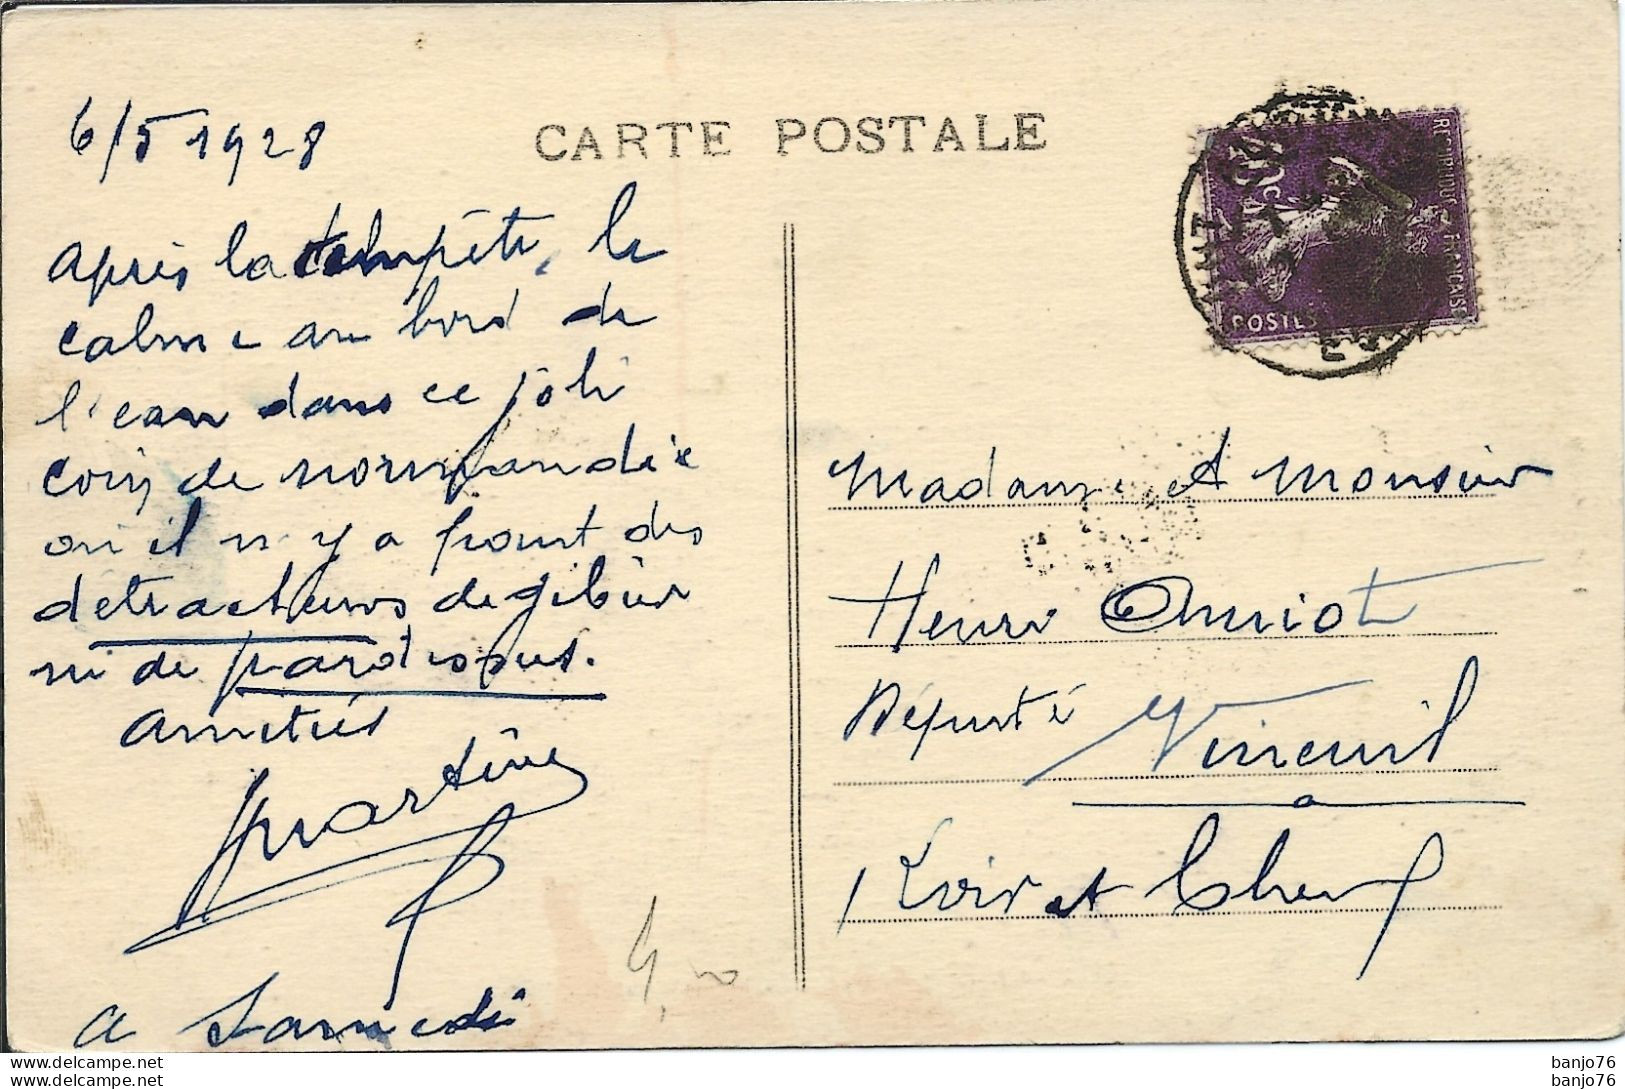 6/5 1928
CARTE POSTALE
après la tempête, le
calme au bord de
l'eau dans ce joli
coin de normandie
où il n'y a point des
détracteurs de gibier
ni de pardessus.
amitiés
Martine
a Samedi
20c
REPUBLIQUE FRANÇAISE
POSTES
Madame et Monsieur
Henri Amiot
Député
Vineuil
a
Loir et Cher
banjo76
banjo76